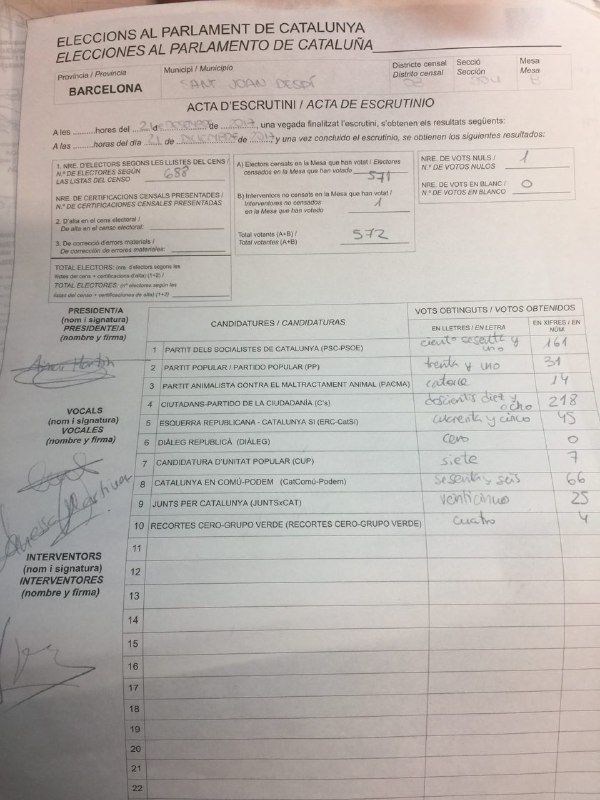 ELECCIONS AL PARLAMENT DE CATALUNYA
ELECCIONES AL PARLAMENTO DE CATALUÑA
Província / Provincia
BARCELONA
Municipi / Municipio
SANT JOAN DESPÍ
Districte censal
Distrito censal
Secció
Sección
Mesa
Mesa
ACTA D'ESCRUTINI / ACTA DE ESCRUTINIO
A les ..........hores del 21 de de 2017, una vegada finalitzat l'escrutini, s'obtenen els resultats següents:
A las ..........horas del día 21 de DICIEMBRE de 2017 y una vez concluido el escrutinio, se obtienen los siguientes resultados:
1. NRE. D'ELECTORS SEGONS LES LLISTES DEL CENS /
N.º DE ELECTORES SEGÚN
LAS LISTAS DEL CENSO 688
NRE. DE CERTIFICACIONS CENSALS PRESENTADES /
N.º DE CERTIFICACIONES CENSALES PRESENTADAS
2. D'alta en el cens electoral /
De alta en el censo electoral:
3. De correcció d'errors materials /
De corrección de errores materiales:
TOTAL ELECTORS: (nre. d'electors segons les
llistes del cens + certificacions d'alta) (1+2) /
TOTAL ELECTORES: (nº electores según las
listas del censo + certificaciones de alta) (1+2)
A) Electors censats en la Mesa que han votat / Electores
censados en la Mesa que han votado 571
B) Interventors no censats en la Mesa que han votat /
Interventores no censados
en la Mesa que han votado 1
Total votants (A+B) /
Total votantes (A+B) 572
NRE. DE VOTS NULS /
N.º DE VOTOS NULOS 1
NRE. DE VOTS EN BLANC /
N.º DE VOTOS EN BLANCO 0
PRESIDENT/A
(nom i signatura)
PRESIDENTE/A
(nombre y firma)
VOCALS
(nom i signatura)
VOCALES
(nombre y firma)
INTERVENTORS
(nom i signatura)
INTERVENTORES
(nombre y firma)
CANDIDATURES / CANDIDATURAS
VOTS OBTINGUTS / VOTOS OBTENIDOS
EN LLETRES / EN LETRA
EN XIFRES / EN NÚM.
1 PARTIT DELS SOCIALISTES DE CATALUNYA (PSC-PSOE) ciento sesenta y uno 161
2 PARTIT POPULAR / PARTIDO POPULAR (PP) trenta y uno 31
3 PARTIT ANIMALISTA CONTRA EL MALTRACTAMENT ANIMAL (PACMA) catorce 14
4 CIUTADANS-PARTIDO DE LA CIUDADANÍA (C's) doscientis diez y ocho 218
5 ESQUERRA REPUBLICANA - CATALUNYA SÍ (ERC-CatSí) cuarenta y cinco 45
6 DIÀLEG REPUBLICÀ (DIÀLEG) cero 0
7 CANDIDATURA D'UNITAT POPULAR (CUP) siete 7
8 CATALUNYA EN COMÚ-PODEM (CatComú-Podem) sesenta y seis 66
9 JUNTS PER CATALUNYA (JUNTSxCAT) venticinco 25
10 RECORTES CERO-GRUPO VERDE (RECORTES CERO-GRUPO VERDE) cuatro 4
11
12
13
14
15
16
17
18
19
20
21
22